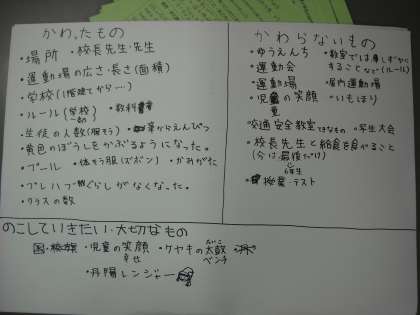 かわったもの
・場所 ・校長先生・先生
・運動場の広さ・長さ(面積)
・学校(1階建てから…)
・ルール(学校) ・教科書
・生徒の人数(服そう) ・筆からえんぴつ
・黄色のぼうしをかぶるようになった。
・プール ・体そう服(ズボン) ・かみがた
・プレハブぐらしがなくなった。
・クラスの数
かわらないもの
・ゆうえんち ・教室では静しずかに
・運動会 することなど(ルール)
・運動場 ・屋内運動場
・児童の笑顔 ・いもほり
・交通安全教室 ・6年生大会
・校長先生と給食を食べること
(今は最後だけ)
6年生
・授業・テスト
のこしていきたい・大切なもの
・校旗 ・児童の笑顔 ・ケヤキの太鼓
ベンチ
・丹陽レンジャー